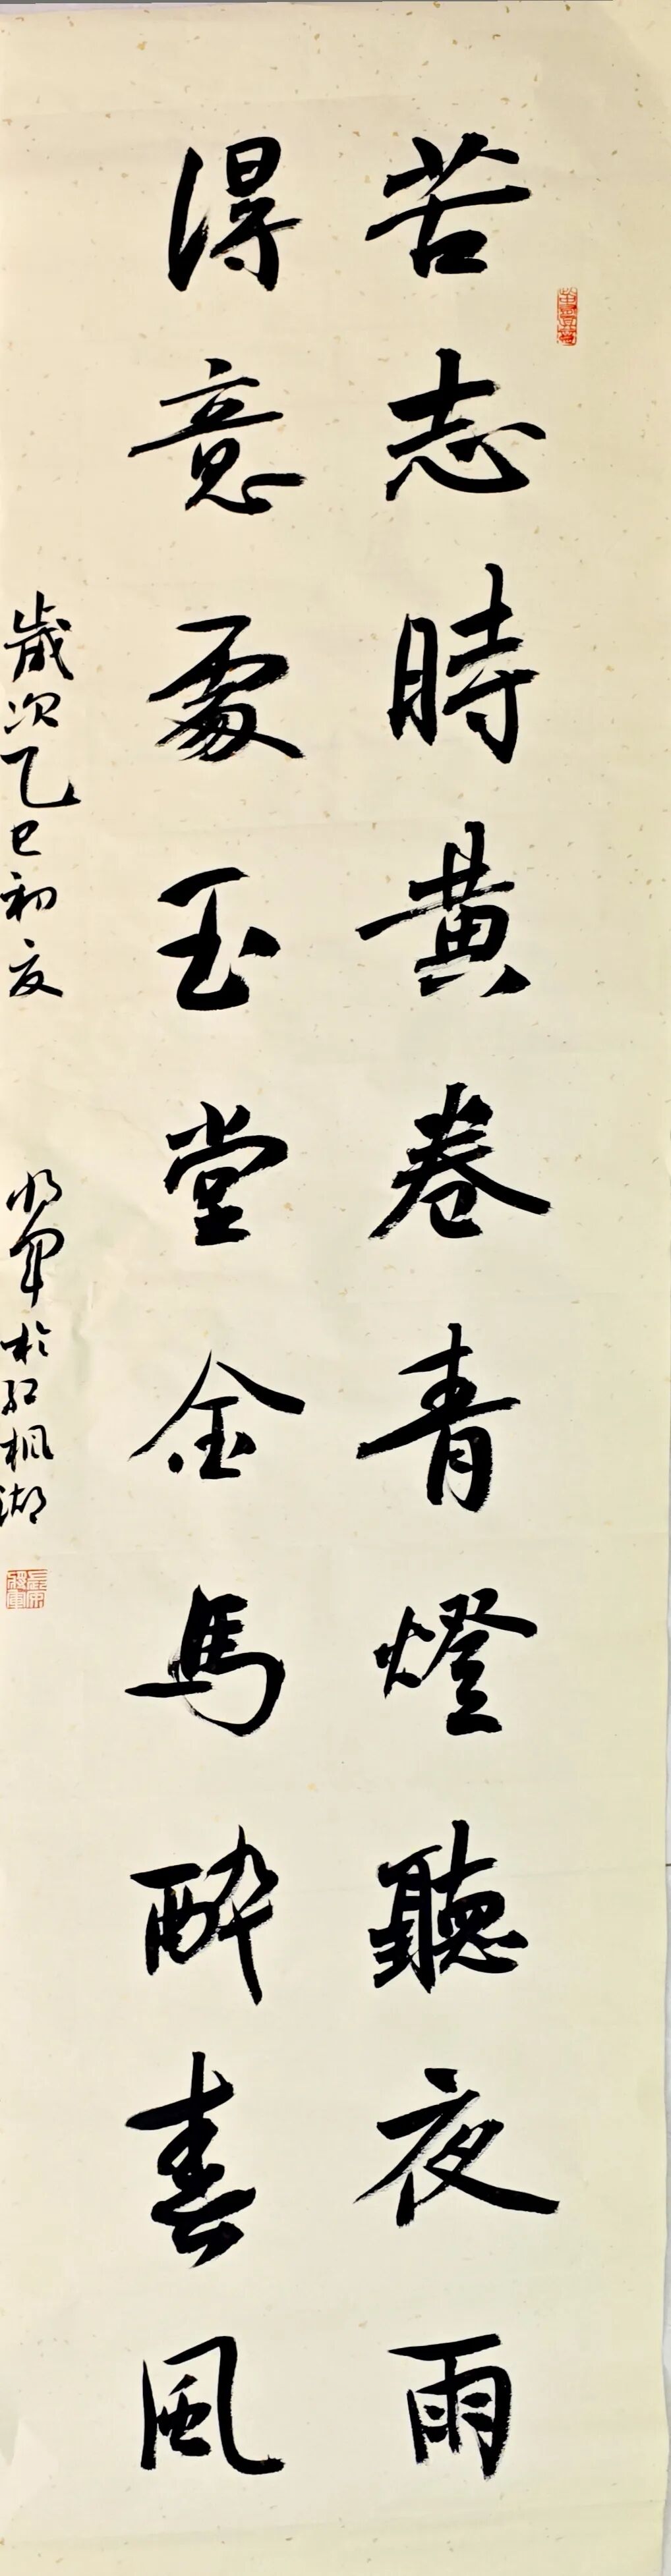 苦志時黄卷青燈聽夜雨
得意處玉堂金馬醉春風
歲次乙巳初夏
軍於紅楓湖